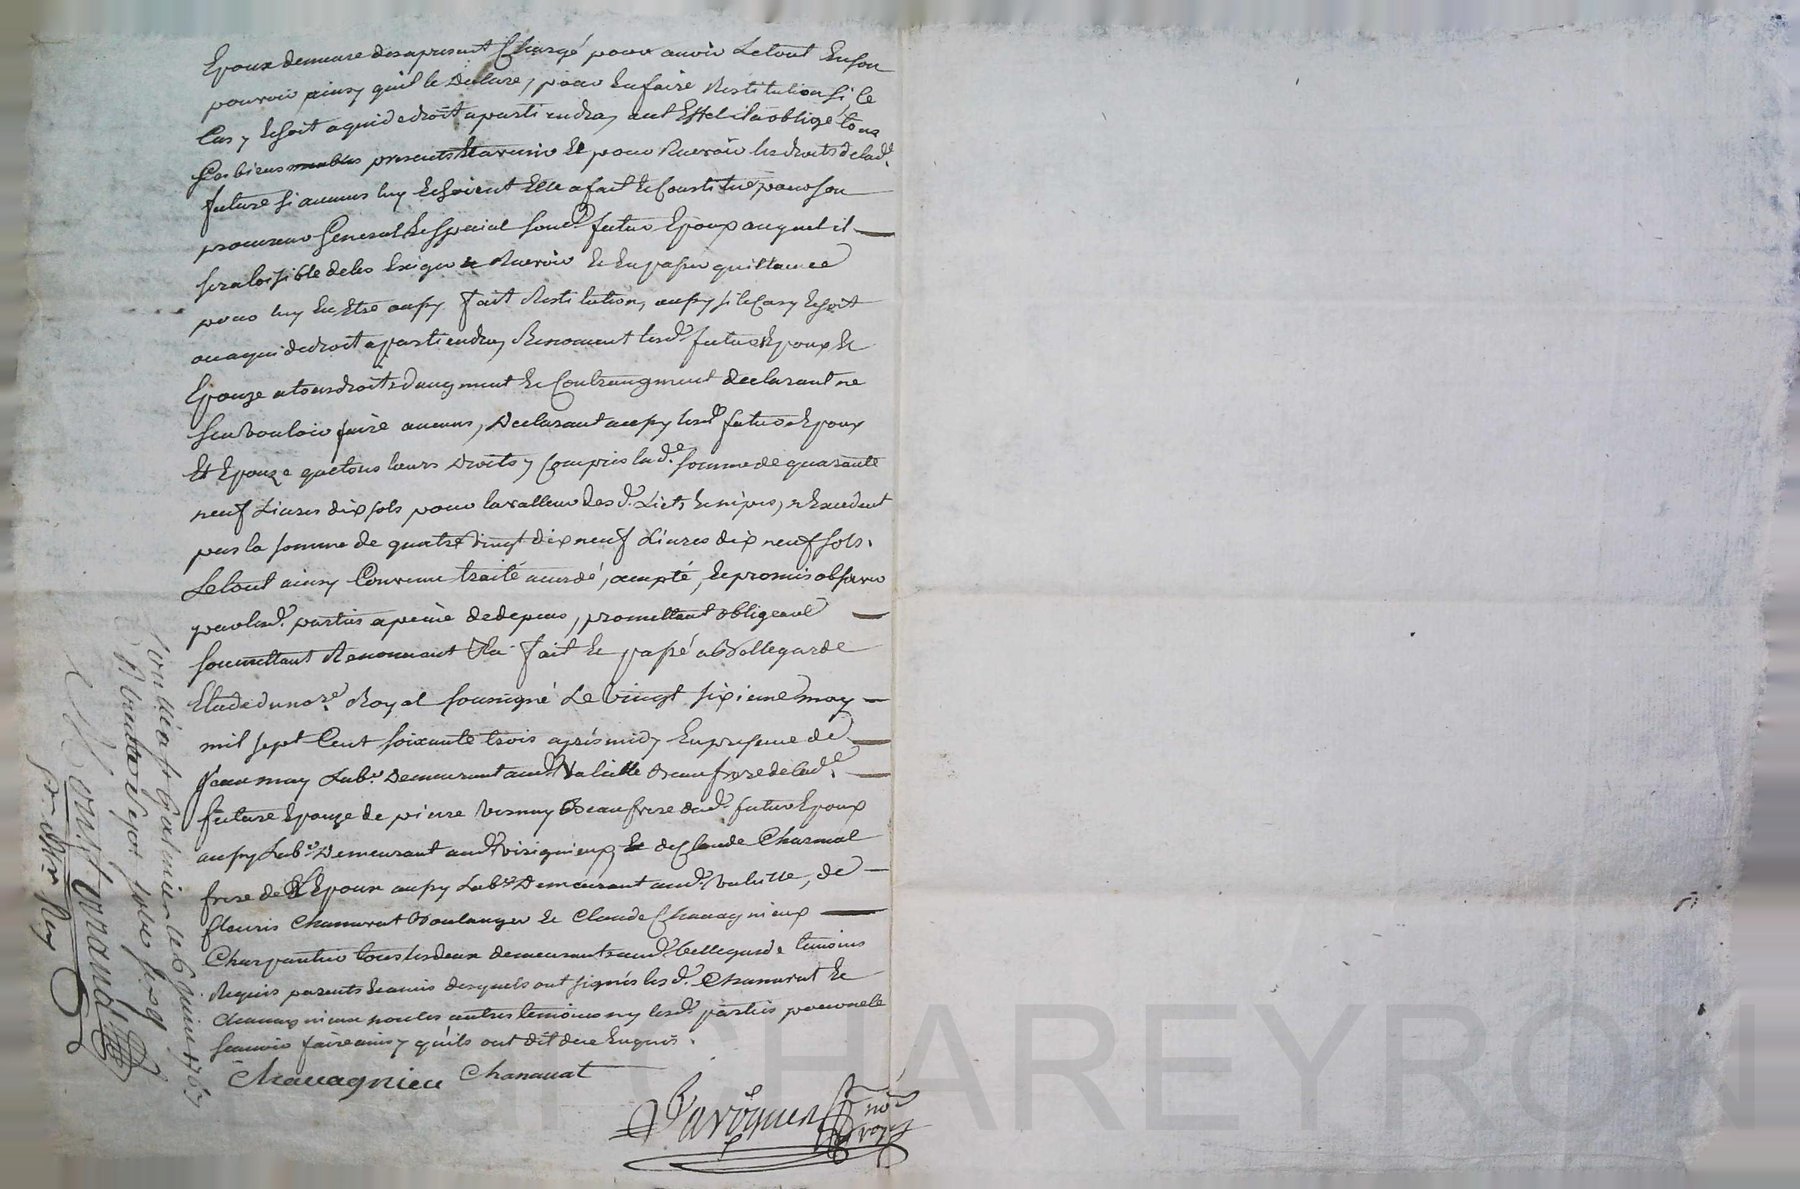 Epoux demeure des apresent Chargé pour avoir Le tout En son
pouvoir ainsy quil le Declare, pour En faire Restitution si le
Cas y Echoit a qui de droit apartiendra, aut Effet il a obligé tous
ses biens meubles presents Et avenir Et pour Recevoir les droits de lad.e
future si aucuns luy Echoient Elle a fait Et Constitué pour son
procureur General Et Special sond. futur Epoux auquel il
sera loisible de les Exiger Et Recevoir Et En passer quittance
pour luy En Etre aussy fait Restitution, aussy si le Cas y Echoit
ou a qui de droit apartiendra, Renoncent lesd. futurs Epoux Et
Epouze a tous droits daugment Et Contraugment declarant ne
sen vouloir faire aucuns, Declarant aussy lesd. futurs Epoux
Et Epouze que tous leurs Droits y Compris lad.e somme de quarante
neuf Livres dix sols pour la valleur des d. Lict Et nipes, n'Excedent
pas la somme de quatre vingt dix neuf Livres dix neuf sols.
Le tout ainsy Convenu traité accordé, accepté, Et promis observer
par lesd. parties a peine de depens, promettant obligeant
soumettant Renoncant &a fait Et passé a Bellegarde
Etude du no.re Royal soussigné Le vingt sixieme may
mil sept Cent soixante trois aprés midy En presence de
Jean may Lab.r Demeurant aud. Valeille Beaufrere de lad.e
future Epouze de pierre Vernay Beaufrere dud. futur Epoux
aussy Lab.r Demeurant aud. Virignieux, Et de Claude Charmal
frere de L'Epoux aussy Lab.r Demeurant aud. Valeille, de
fleuris Chanavat Boulanger Et Claude Chavagnieux
Charpentier tous les deux demeurants aud. bellegarde temoins
Requis parents Et amis desquels ont signés les d. Chanavat Et
Chavagnieux non les autres temoins ny lesd. parties pour ne le
scavoir faire ainsy quils ont dit de ce Enquis.
Chavagnieu Chanavat
Paroquer
no.re
royal
Con.lé a St Galmier le 6 juin 1763